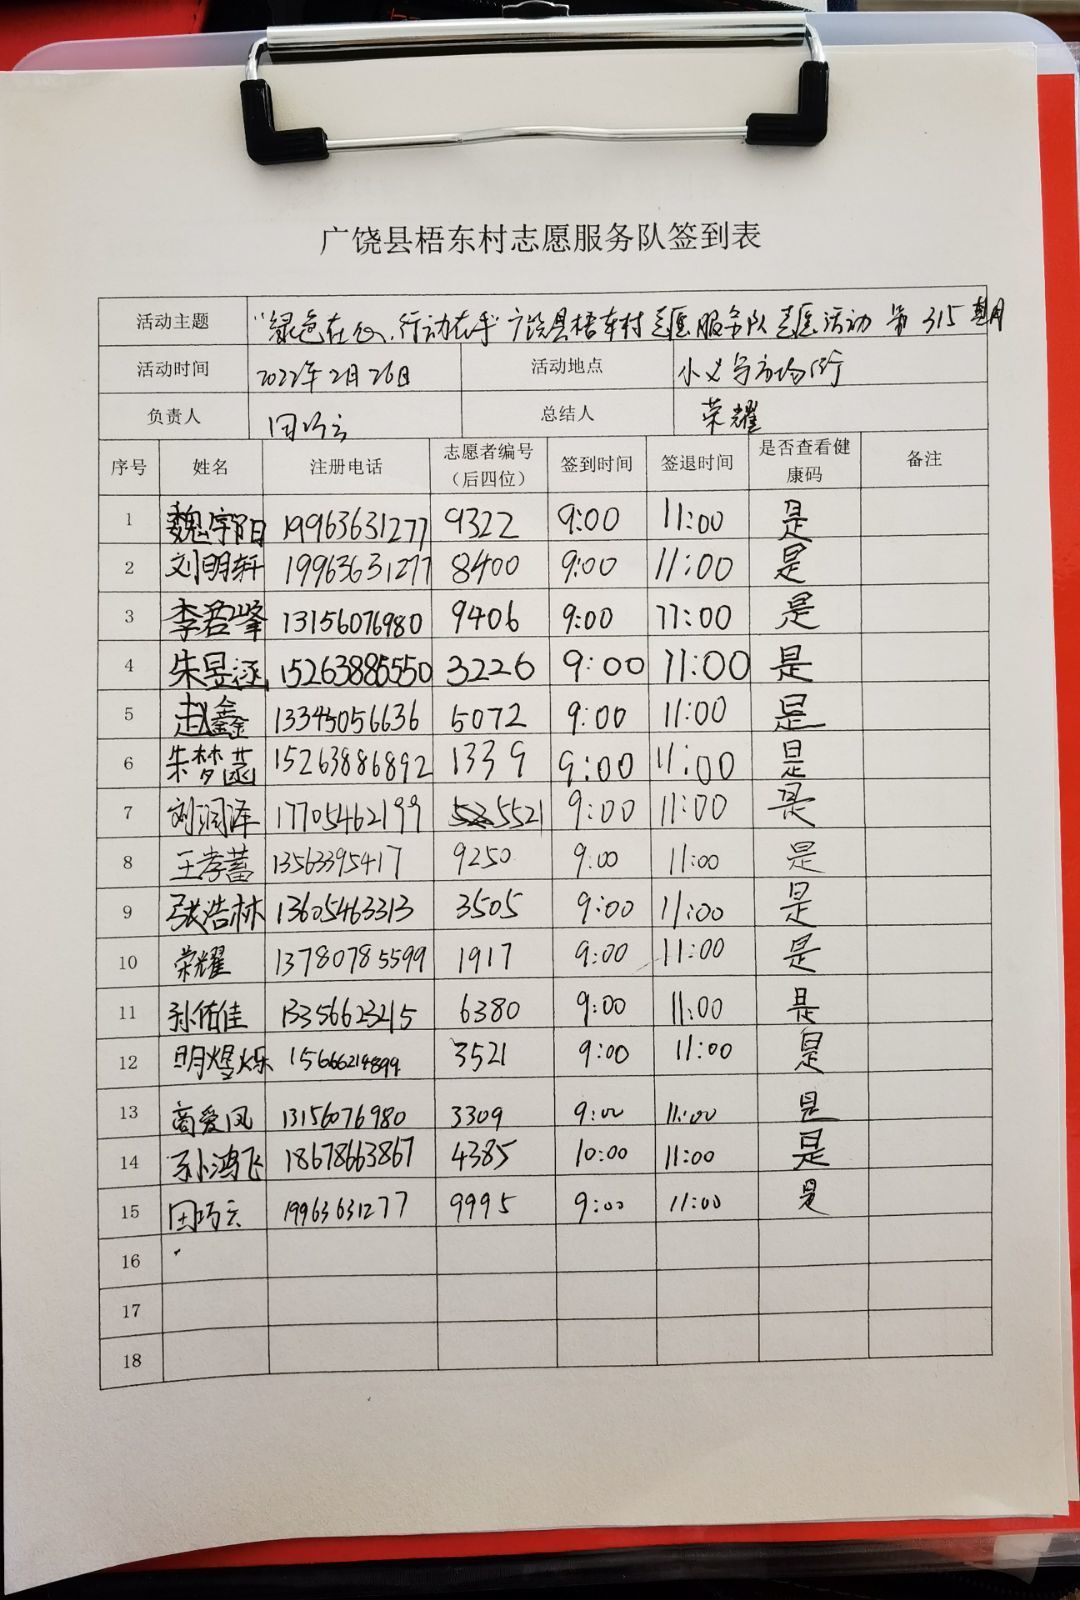 广饶县梧东村志愿服务队签到表
活动主题 "绿色在心、行动在手"广饶县梧东村志愿服务队志愿活动第315期
活动时间 2022年2月26日 活动地点 小义乌市场街
负责人 田巧云 总结人 荣耀
序号 姓名 注册电话 志愿者编号（后四位） 签到时间 签退时间 是否查看健康码 备注
1 魏宇阳 19963631277 9322 9:00 11:00 是
2 刘明轩 19963631277 8400 9:00 11:00 是
3 李君峰 13156076980 9406 9:00 11:00 是
4 朱昱涵 15263885550 3226 9:00 11:00 是
5 赵鑫 13345056636 5072 9:00 11:00 是
6 朱梦菡 15263886892 1339 9:00 11:00 是
7 刘润泽 17705462199 5521 9:00 11:00 是
8 王孝蓄 13563395417 9250 9:00 11:00 是
9 张浩林 13605463313 3505 9:00 11:00 是
10 荣耀 13780785599 1917 9:00 11:00 是
11 孙佑佳 13356623215 6380 9:00 11:00 是
12 明煜烁 15666214899 3521 9:00 11:00 是
13 高爱凤 13156076980 3309 9:00 11:00 是
14 孙鸿飞 18678663867 4385 10:00 11:00 是
15 田巧云 19963631277 9995 9:00 11:00 是
16
17
18